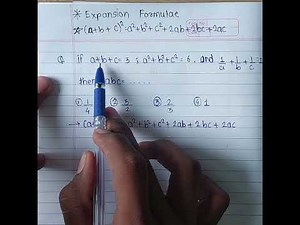 * Expansion Formulae
* (a+b+c)² = a²+b²+c²+2ab+2bc+2ac
Q. if a+b+c=3; a²+b²+c²=6, and 1/a + 1/b + 1/c =
then abc = ------
① 1/4 ② 3/2 ③ 2/3 ④ 1
→ (a a²+b²+c²+2ab+2bc+2ac